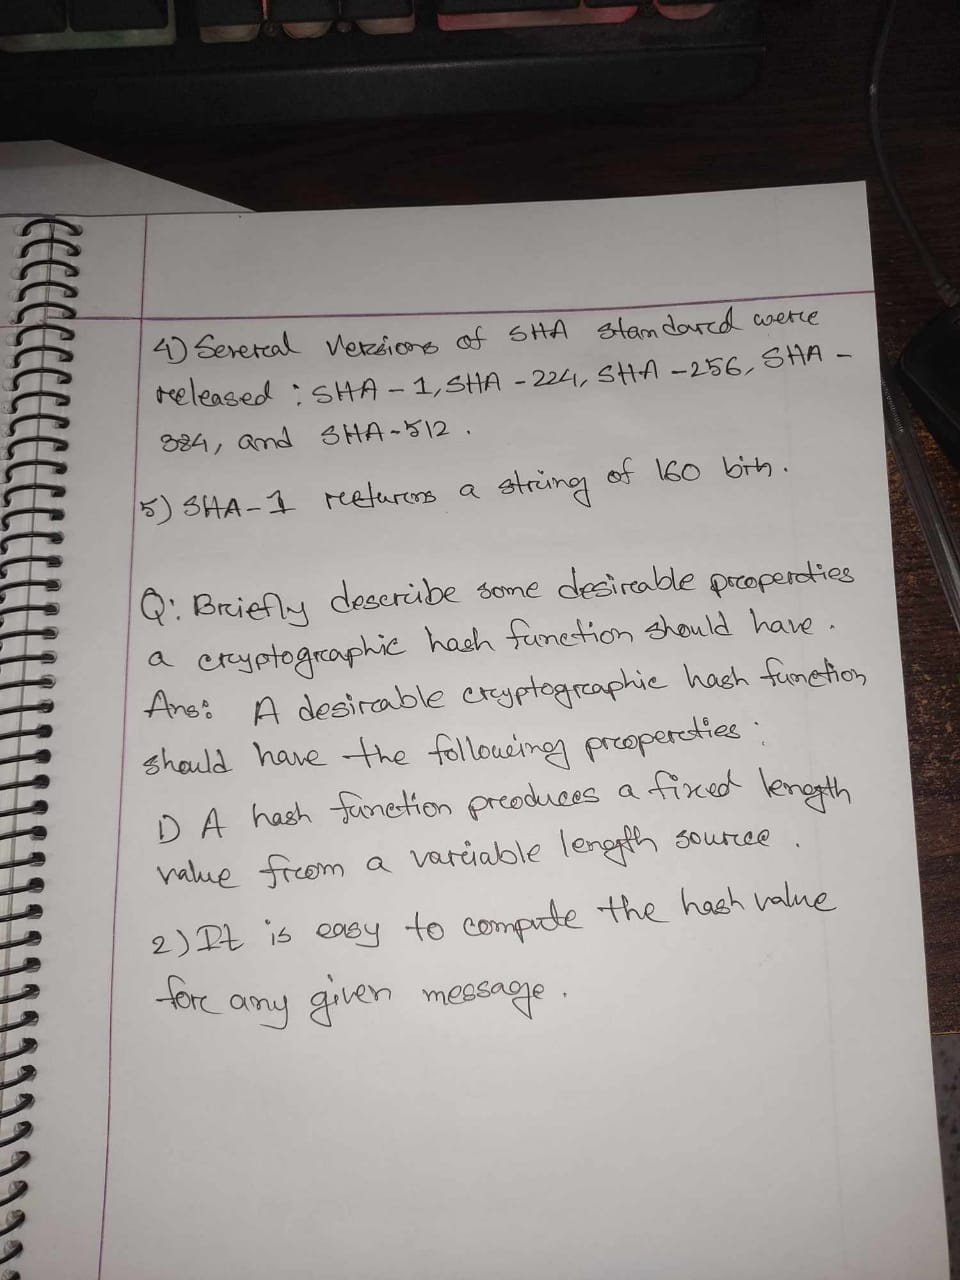 4) Several versions of SHA standard were
released : SHA - 1, SHA - 224, SHA - 256, SHA -
384, and SHA - 512 .
5) SHA - 1 returns a string of 160 bits .
Q: Briefly describe some desirable properties
a cryptographic hash function should have .
Ans: A desirable cryptographic hash function
should have the following properties :
1) A hash function produces a fixed length
value from a variable length source .
2) It is easy to compute the hash value
for any given message .